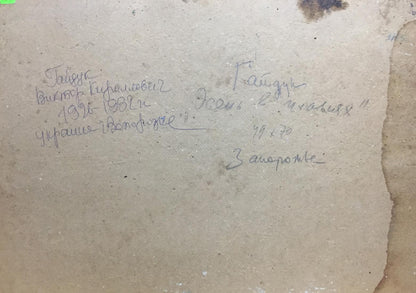 Гайдук
Виктор Кириллович
1926-1982 г.
Украина Запорожье
Гайдук
"Осень в плавнях"
49 x 70
Запорожье